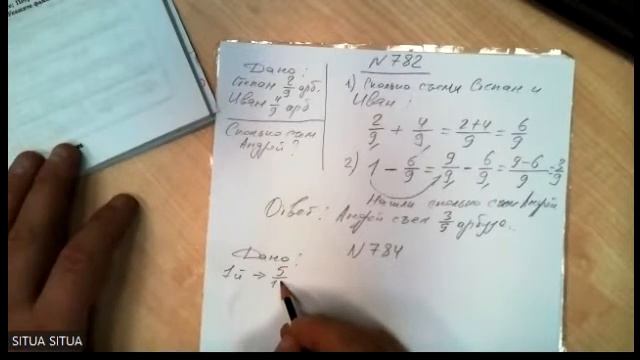 Дано:
Степан 2/9 арб.
Иван 4/9 арб
Сколько съел
Андрей?
N 782
1) Сколько съели Степан и
Иван:
2/9 + 4/9 = 2+4/9 = 6/9
2) 1 - 6/9 = 9/9 - 6/9 = 9-6/9 = 3/9
Нашли сколько съел Андрей
Ответ: Андрей съел 3/9 арбуза.
N 784
Дано:
1й → 5/1
SITUA SITUA